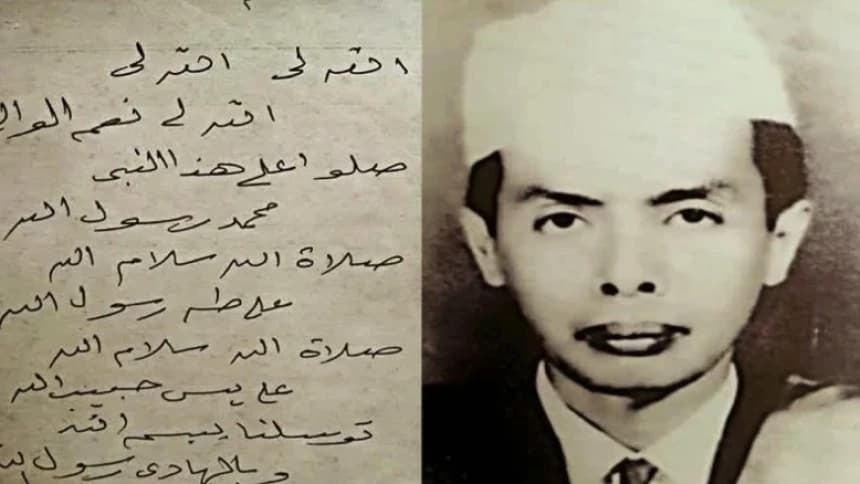 الله لى الله لى
الله لى نعم
صلوا على هذا النبى
محمد رسول الله
صلاة الله سلام الله
على طه رسول الله
صلاة الله سلام الله
على يس حبيب الله
توسلنا ببسم الله
وبالهادى رسول